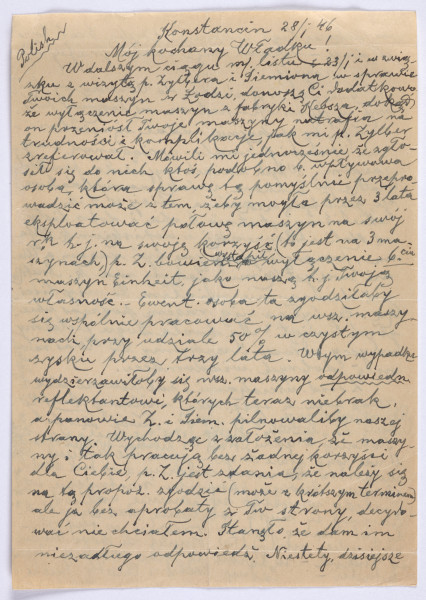 Polish
Konstancin 28/I 46
Mój kochany Władku!
W dalszym ciągu mj. listu z 23/I i w zwią-
zku z wizytą p. Zylbera i Siemiona w sprawie
Twoich maszyn w Łodzi, donoszę Ci dodatkowo,
że wyłączenie maszyn z fabryki dokąd
on przeniósł Twoje maszyny natrafia na
trudności i komplikacje, jak mi p. Zylber
zreferował. Mówili mi jednocześnie że zgło-
sił się do nich ktoś, podobno b. wpływowa
osoba, która sprawę tą pomyślnie przepro-
wadzić może z tem, żeby mogła przez 3 lata
eksploatować połowę maszyn na swój
r-k h.j. na swoją korzyść (to jest na 3 ma-
szynach) p. Z. bowiem wyłączenie 6-ciu
maszyn Einheit, jako naszą h.j. Twoją
własność. - Ewent. osoba ta zgodziłaby
się wspólnie pracować na wsz. maszy-
nach przy udziale 50% w czystym
zysku przez trzy lata. W tym wypadku
wydzierżawiłoby się wsz. maszyny odpowiedn.
reflektantowi, których teraz niebrak,
a panowie Z. i Siem. pilnowaliby naszej
strony. Wychodząc z założenia, że maszy-
ny i tak pracują bez żadnej korzyści
dla Ciebie, p. Z. jest zdania, że należy się
na tą propoz. zgodzić (może z krótszym terminem)
ale ja bez aprobaty z Tw. strony decydo-
wać nie chciałem. Stanęło, że dam im
niezadługo odpowiedź. Niestety, dzisiejsze